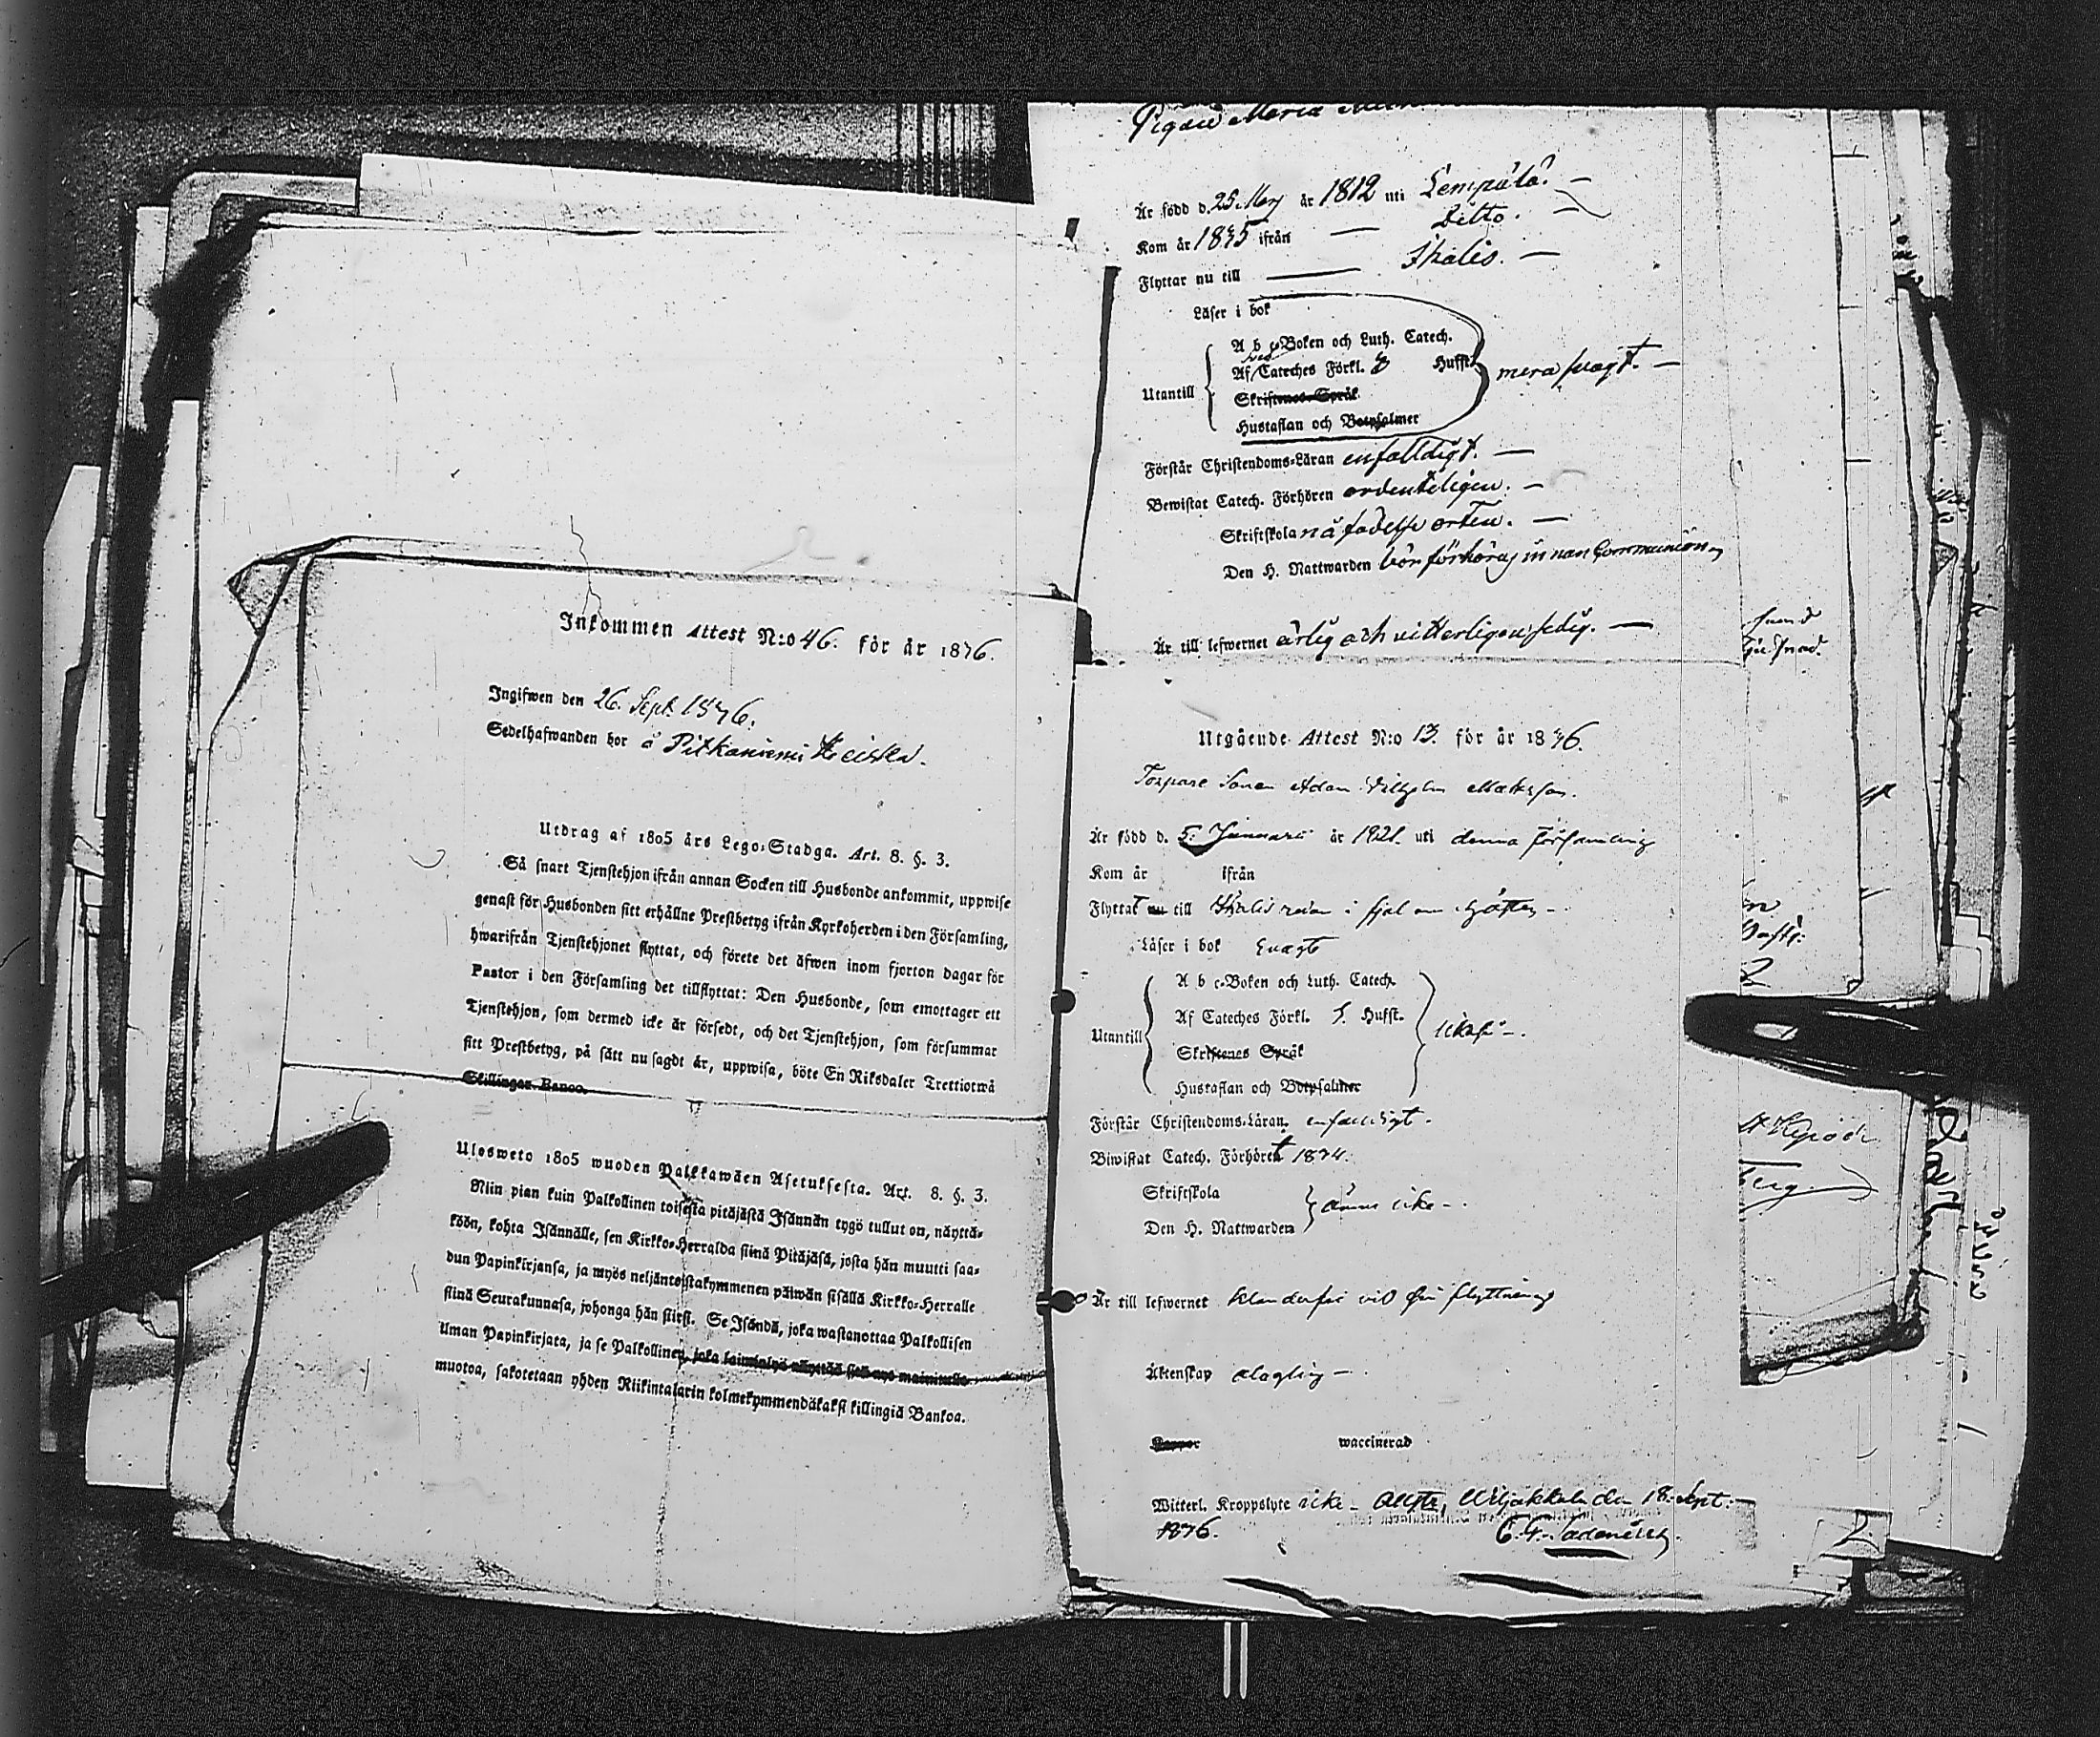 Inkommen Attest N:o 46. för år 1836.
Ingifwen den 26. Sept. 1836.
Sedelhafwanden bor å Pitkäniemi Heickla.
Utdrag af 1805 års Lego-Stadga. Art. 8. §. 3.
Så snart Tjenstehjon ifrån annan Socken till Husbonde ankommit, uppwise
genast för Husbonden sitt erhållne Prestbetyg ifrån Kyrkoherden i den Församling,
hwarifrån Tjenstehjonet flyttat, och förete det äfwen inom fjorton dagar för
Pastor i den Församling det tillflyttat: Den Husbonde, som emottager ett
Tjenstehjon, som dermed icke är försedt, och det Tjenstehjon, som försummar
sitt Prestbetyg, på sätt nu sagdt är, uppwisa, böte En Riksdaler Trettiotwå
Skillingar Banco.
Ulosweto 1805 wuoden Palkkawäen Asetuksesta. Art. 8. §. 3.
Niin pian kuin Palkollinen toisesta pitäjästä Isännän tygö tullut on, näyttä-
köön, kohta Isännälle, sen Kirkko-Herralda siinä Pitäjäsä, josta hän muutti saa-
dun Papinkirjansa, ja myös neljäntoistakymmenen päiwän sisällä Kirkko-Herralle
siinä Seurakunnasa, johonga hän siirsi. Se Isändä, joka wastanottaa Palkollisen
ilman Papinkirjata, ja se Palkollinen, joka laiminlyö näyttää sitä nyt mainitulla
muotoa, sakotetaan yhden Riikintalarin kolmekymmendäkaksi killingiä Bankoa.
Pigan Maria
Är född d. 25. Marj år 1812 uti Lempälä. —
Kom år 1835 ifrån — Ditto. —
Flyttar nu till — Ikalis. —
Läser i bok
A b c-Boken och Luth. Catech.
Af Cateches Förkl. Hufst.
Utantill mera swagt. —
Skriftenes Språk
Hustaflan och Botpsalmer
Förstår Christendoms-Läran enfaldigt. —
Bewistat Catech. Förhören ordenteligen. —
Skriftskolan å födelse orten. —
Den H. Nattwarden bör förhöras innan Communion
Är till lefwernet ärlig och witterligen sedig. —
Utgående Attest N:o 13. för år 1836.
Torpare Sonen Adam Wilhelm Mattsson.
Är född d. 5. Januarii år 1821. uti denna församling
Kom år ifrån
Flyttat nu till Ikalis redan i fjol om hösten -
Läser i bok swagt
A b c-Boken och Luth. Catech.
Af Cateches Förkl. 5. Hufst.
Utantill likaså -.
Skriftenes Språk
Hustaflan och Botpsalmer
Förstår Christendoms-Läran enfaldigt.
Biwistat Catech. Förhöret 1834.
Skriftskola
ännu icke -.
Den H. Nattwarden
Är till lefwernet klanderfri wid sin flyttning
Äktenskap oläglig -.
Koppor waccinerad
Witterl. Kroppslyte icke - Attest, Wiljakkala den 18. Sept.
1836.